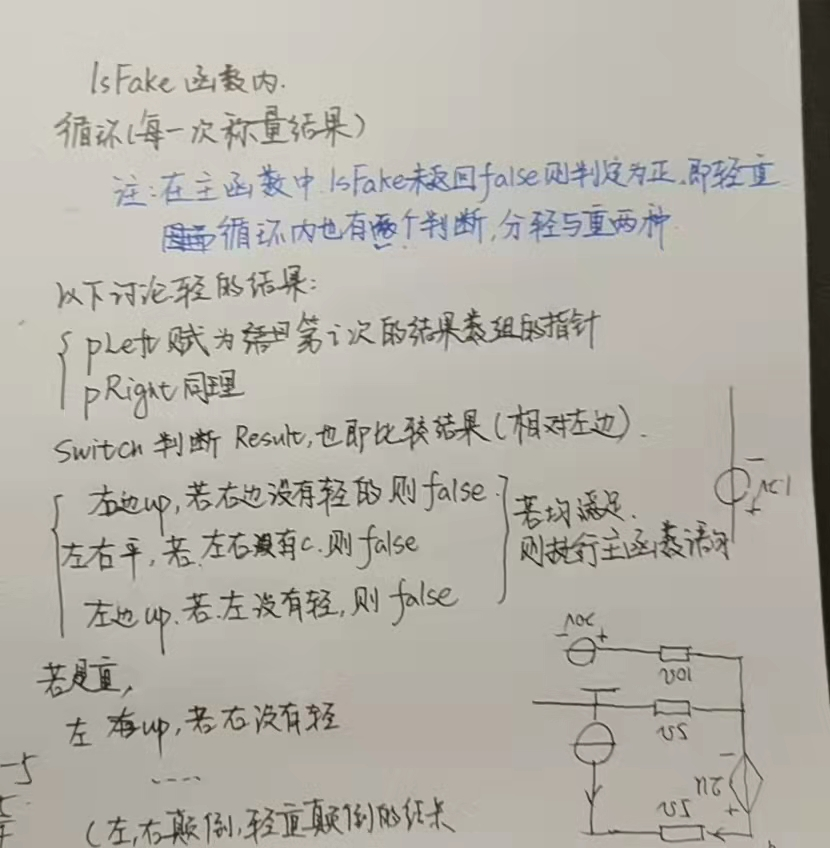 IsFake 函数内.
循环(每一次称量结果)
注:在主函数中.IsFake未返回false则判定为正.即轻重
循环内也有两个判断,分轻与重两种.
以下讨论轻的结果:
pLeft 赋为第i次的结果数组的指针
pRight同理
Switch 判断 Result,也即比较结果(相对左边).
右边up,若右边没有轻的则false.
左右平,若.左右有c.则false
左边up.若.左没有轻,则false
若均满足.
则执行主函数语句
若是重,
左 up,若右没有轻
----
(左,右颠倒,轻重颠倒的结果
-5
5
12V
- +
20V
- +
10Ω
5Ω
2u
- +
5Ω